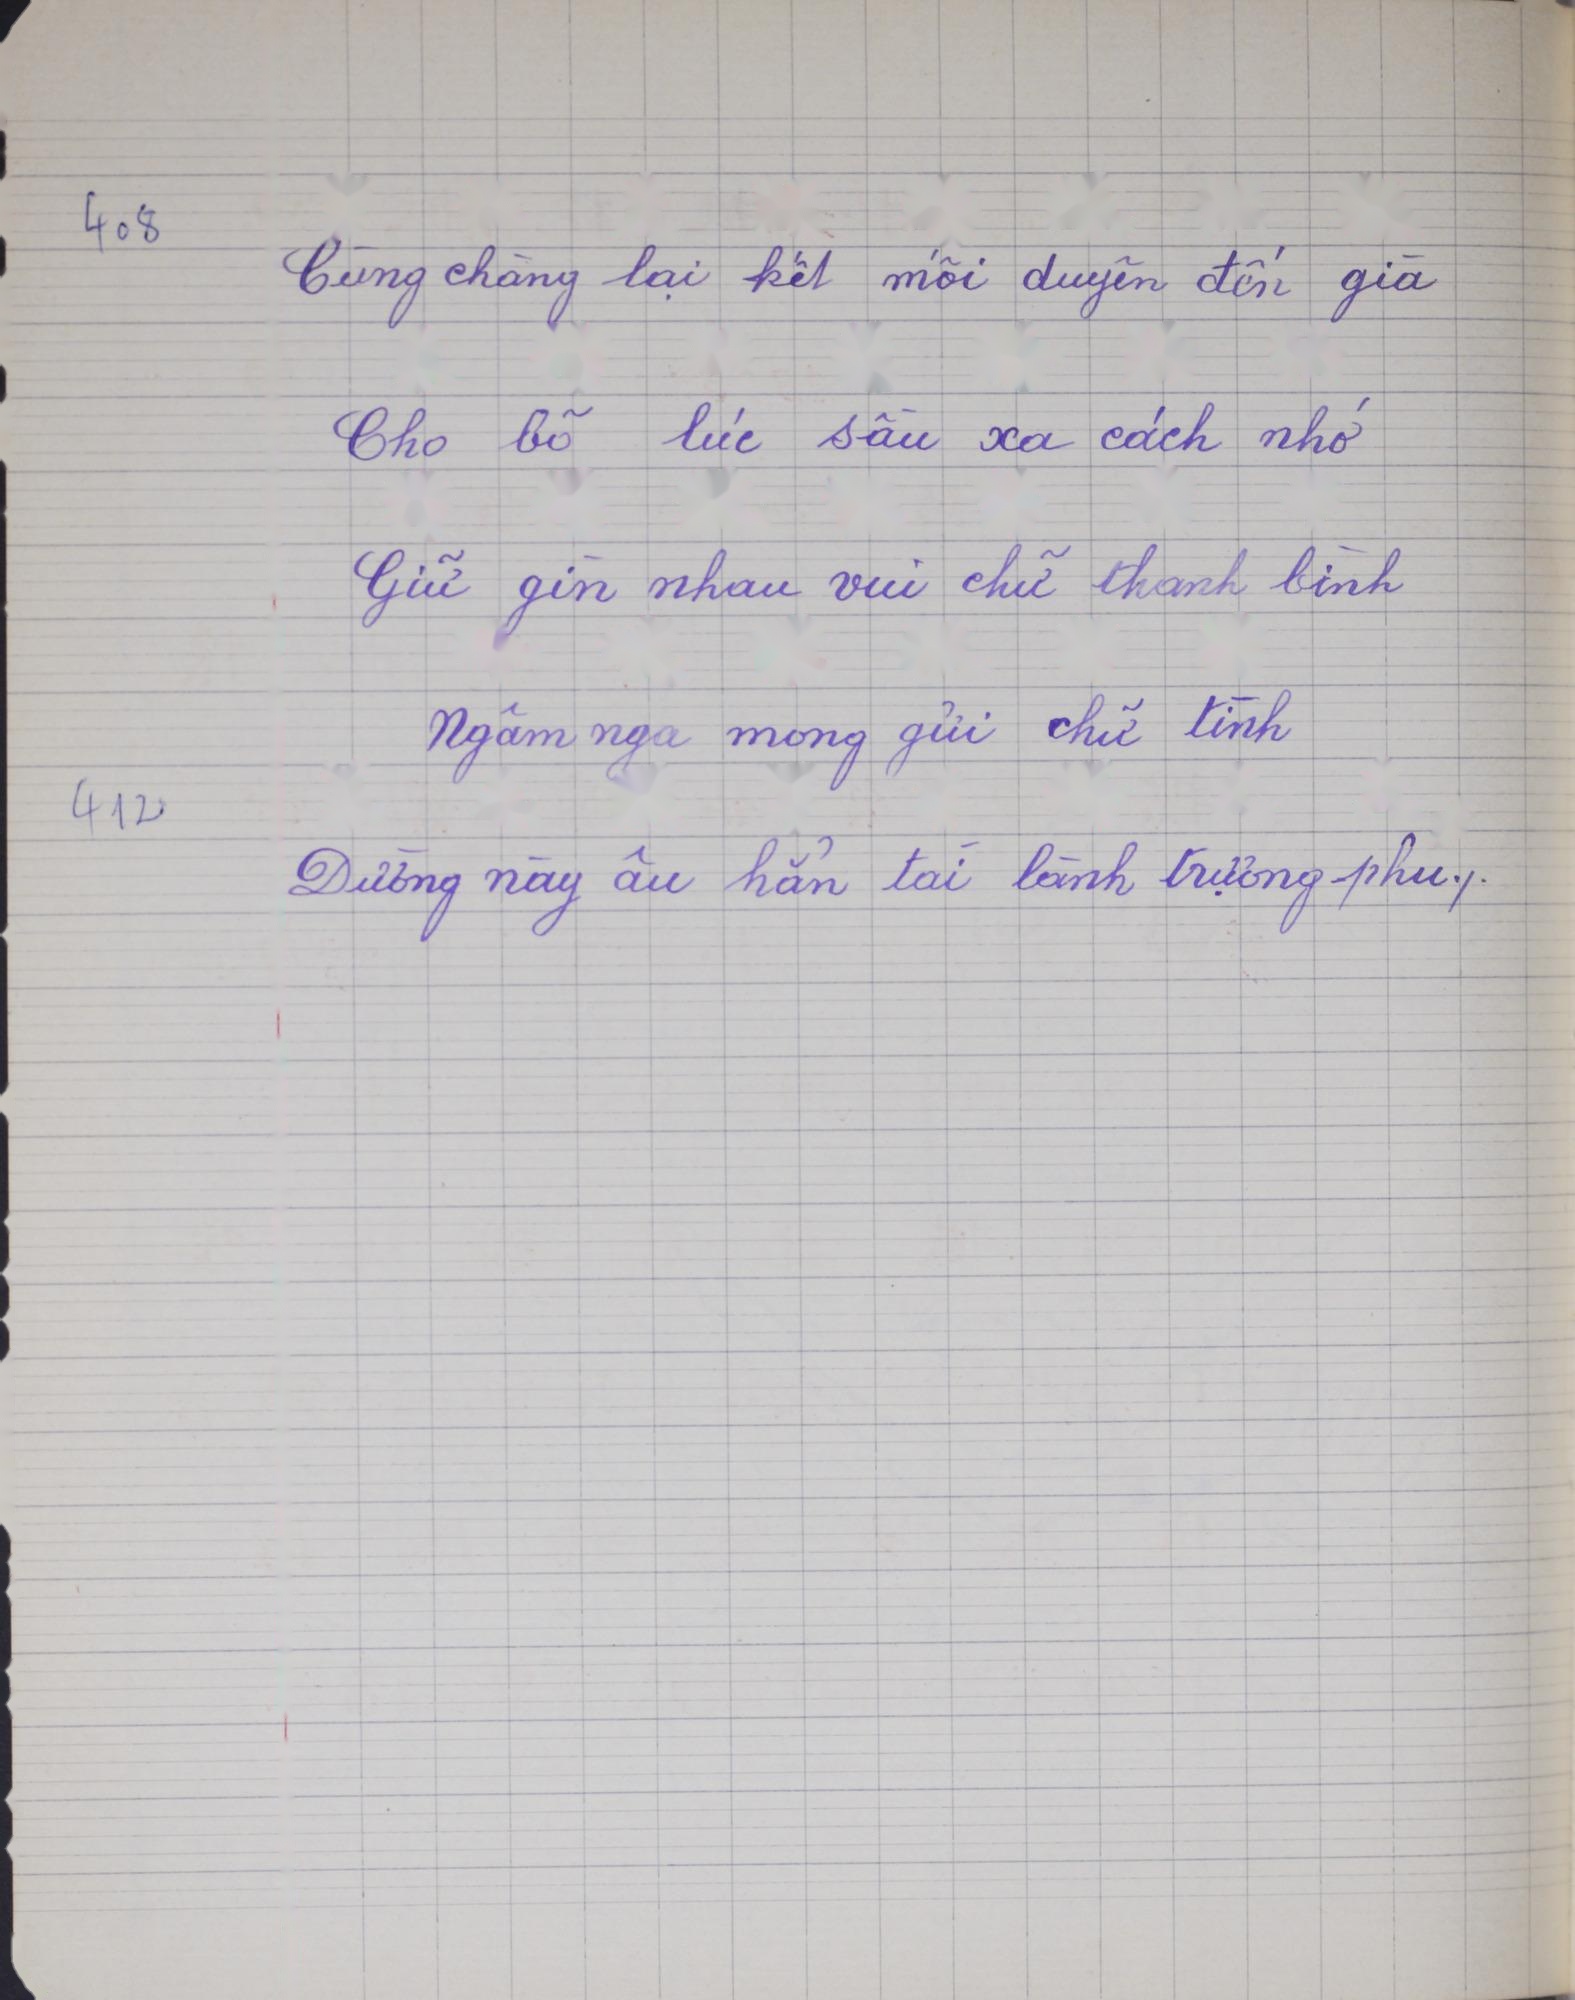 408
Cùng chàng lại kết mối duyên đến già
Cho bõ lúc sầu xa cách nhớ
Giữ gìn nhau vui chữ thanh bình
Ngâm nga mong gửi chữ tình
412
Dường này âu hẳn tài lành trượng phu./.